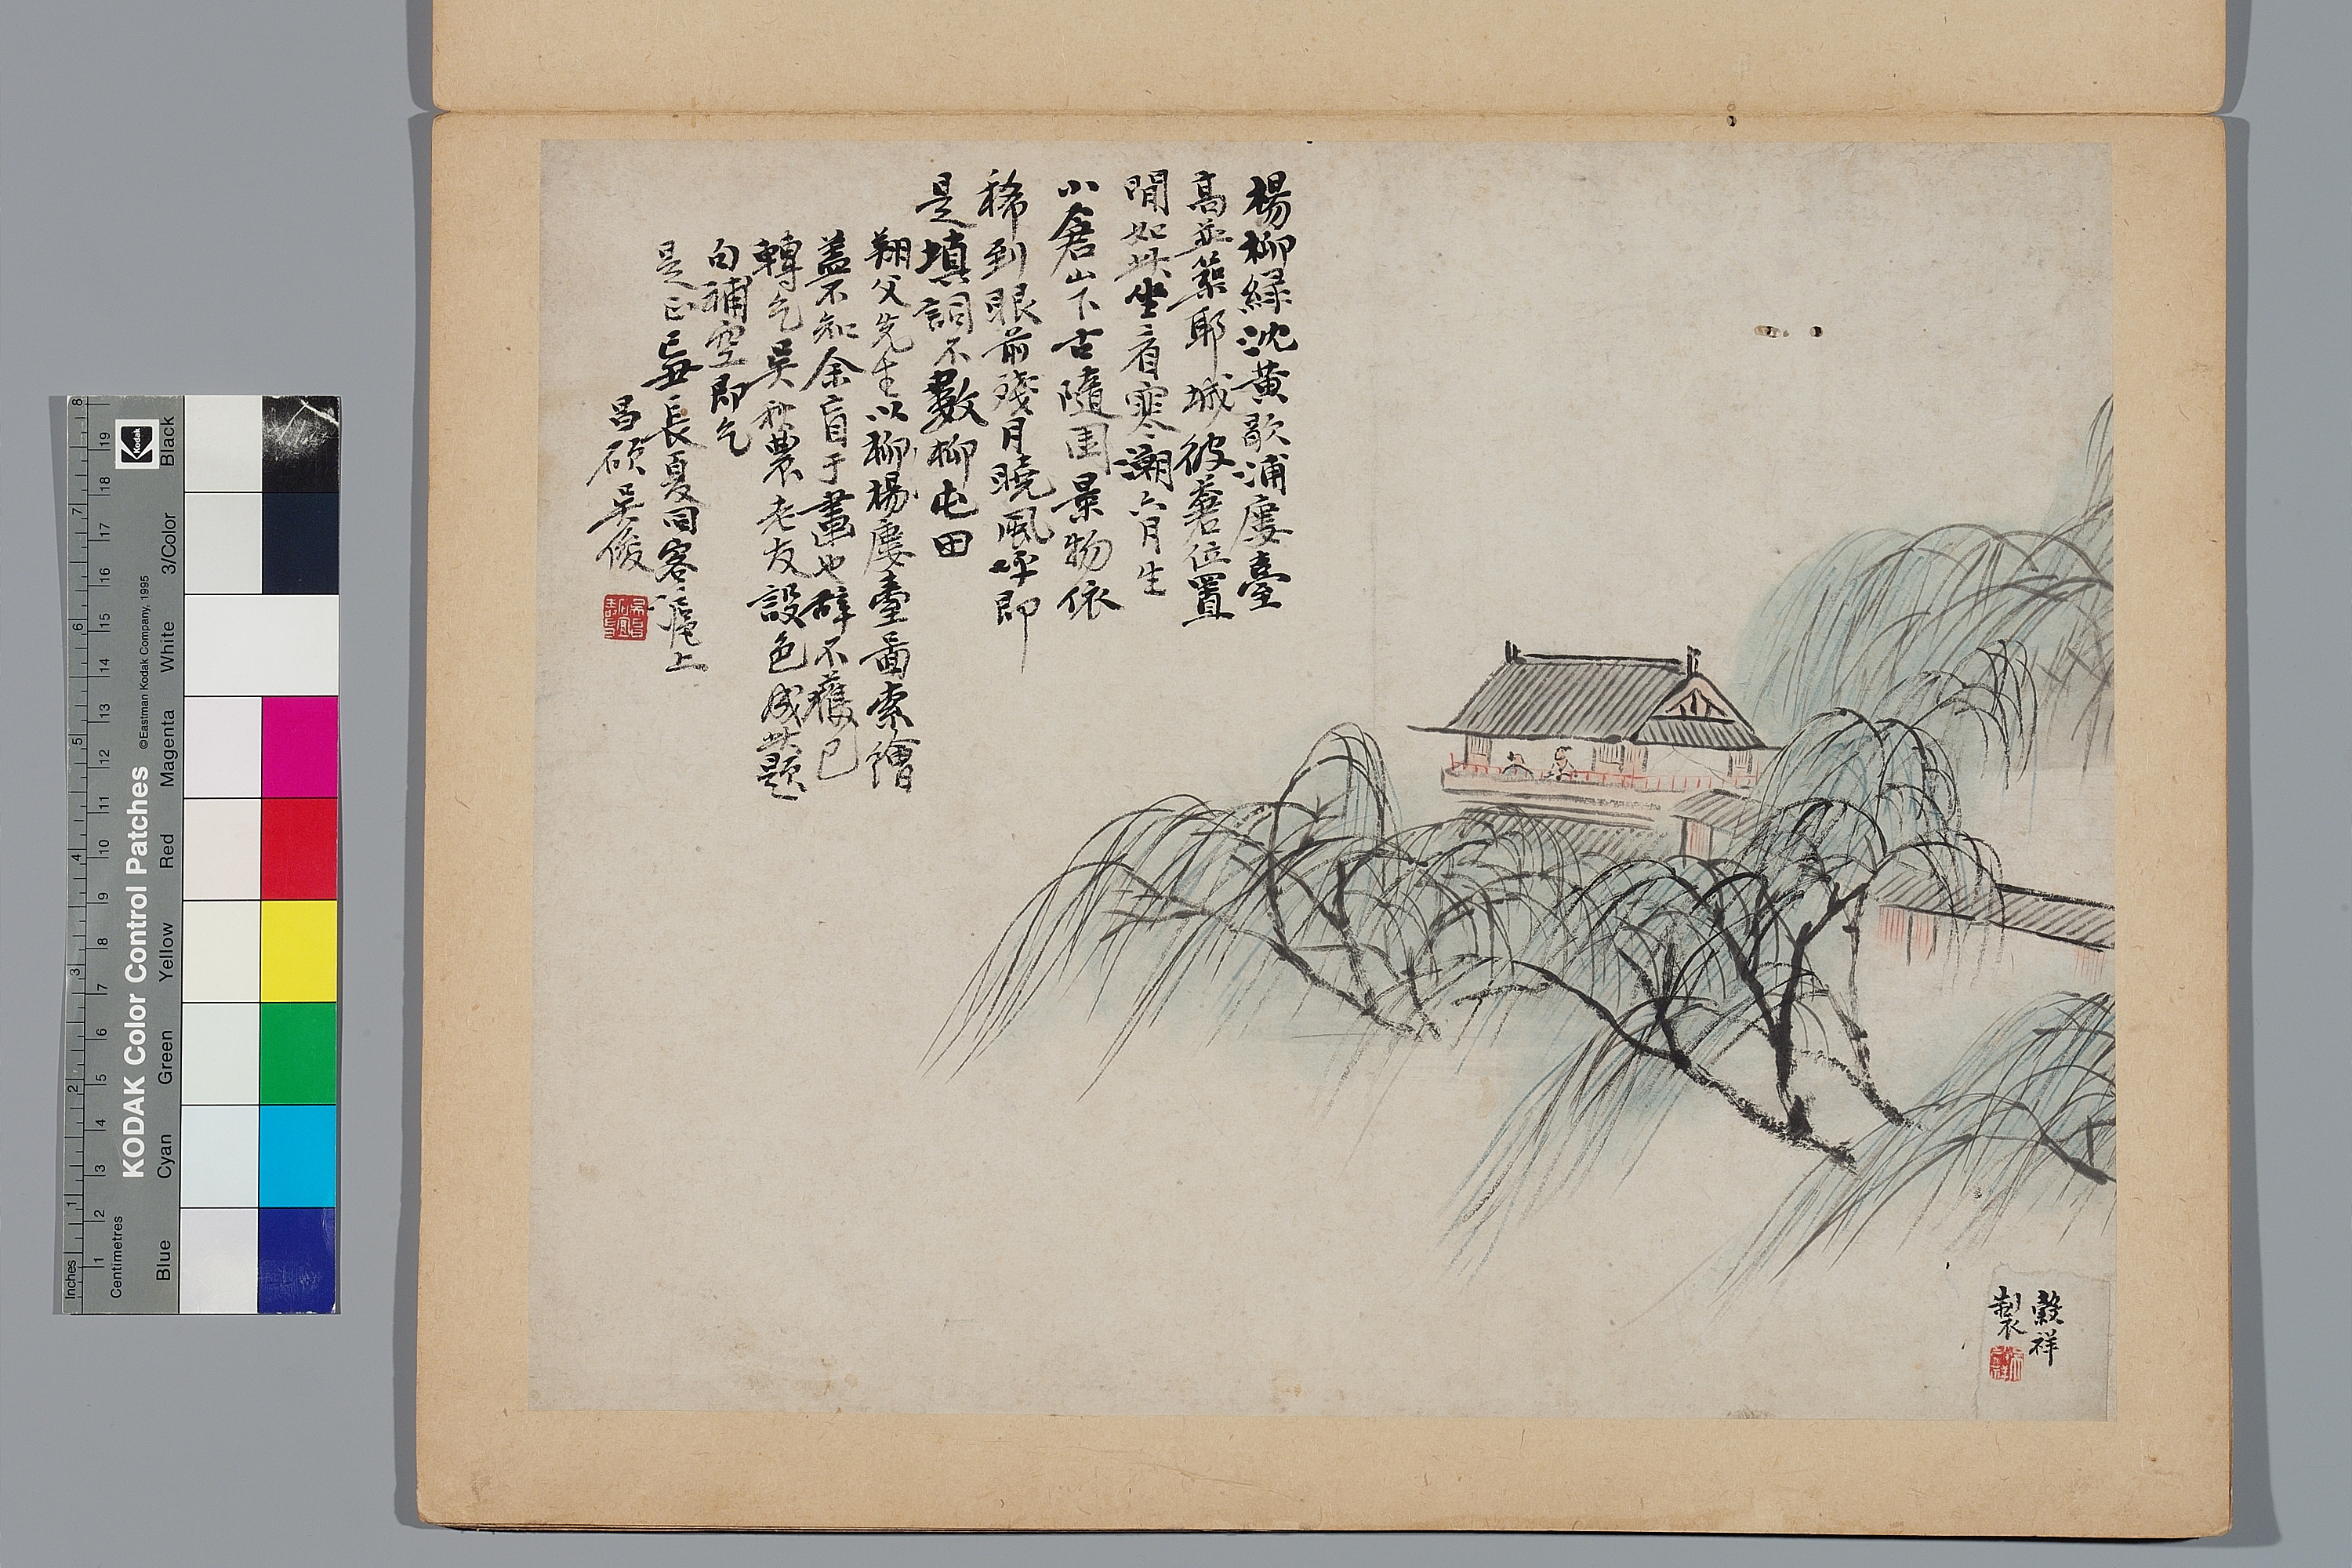 楊柳綠沈黃歇浦廔臺
高並築耶城彼蒼位置
閒如此坐看寒潮六月生
小倉山下古隨園景物依
稀到眼前殘月曉風呼即
是填詞不數柳屯田
翔父先生以柳楊廔臺圖索繪
蓋不知余盲于畫也辭不獲已
轉乞吳秋農老友設色成此題
句補空即乞
是正己丑長夏同客滬上
昌碩吳俊
穀祥
製
KODAK Color Control Patches
©Eastman Kodak Company, 1995
Kodak
Inches
Centimetres
Blue
Cyan
Green
Yellow
Red
Magenta
White
3/Color
Black
1 2 3 4 5 6 7 8
1 2 3 4 5 6 7 8 9 10 11 12 13 14 15 16 17 18 19